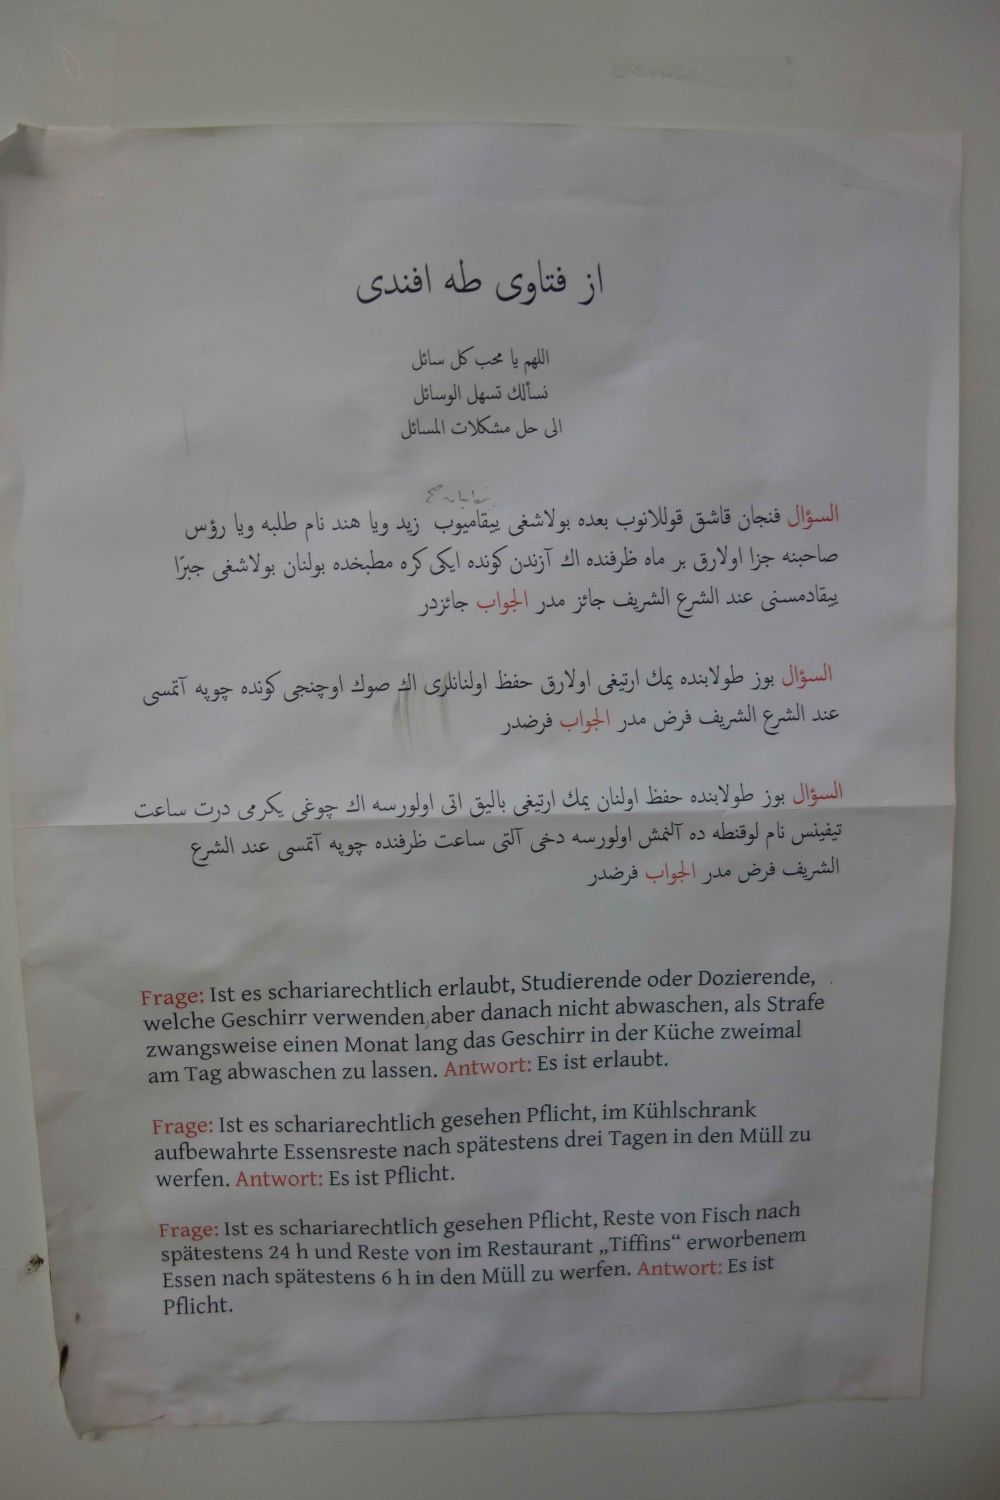 از فتاوى طه افندى
اللهم يا محب كل سائل
نسألك تسهل الوسائل
الى حل مشكلات المسائل
السؤال فنجان قاشق قوللانوب بعده بولاشغى ييقاميوب زيد ويا هند نام طلبه ويا رؤس
صاحبنه جزا اولارق بر ماه ظرفنده اك آزندن كونده ايكى كره مطبخده بولنان بولاشغى جبرًا
ييقادمسنى عند الشرع الشريف جائز مدر الجواب جائزدر
السؤال بوز طولابنده يمك ارتيغى اولارق حفظ اولنانلرى اك صوك اوچنجى كونده چوپه آتمسى
عند الشرع الشريف فرض مدر الجواب فرضدر
السؤال بوز طولابنده حفظ اولنان يمك ارتيغى باليق اتى اولورسه اك چوغى يكرمى درت ساعت
تيفينس نام لوقنطه ده آلنمش اولورسه دخى آلتى ساعت ظرفنده چوپه آتمسى عند الشرع
الشريف فرض مدر الجواب فرضدر
Frage: Ist es schariarechtlich erlaubt, Studierende oder Dozierende,
welche Geschirr verwenden aber danach nicht abwaschen, als Strafe
zwangsweise einen Monat lang das Geschirr in der Küche zweimal
am Tag abwaschen zu lassen. Antwort: Es ist erlaubt.
Frage: Ist es schariarechtlich gesehen Pflicht, im Kühlschrank
aufbewahrte Essensreste nach spätestens drei Tagen in den Müll zu
werfen. Antwort: Es ist Pflicht.
Frage: Ist es schariarechtlich gesehen Pflicht, Reste von Fisch nach
spätestens 24 h und Reste von im Restaurant „Tiffins“ erworbenem
Essen nach spätestens 6 h in den Müll zu werfen. Antwort: Es ist
Pflicht.